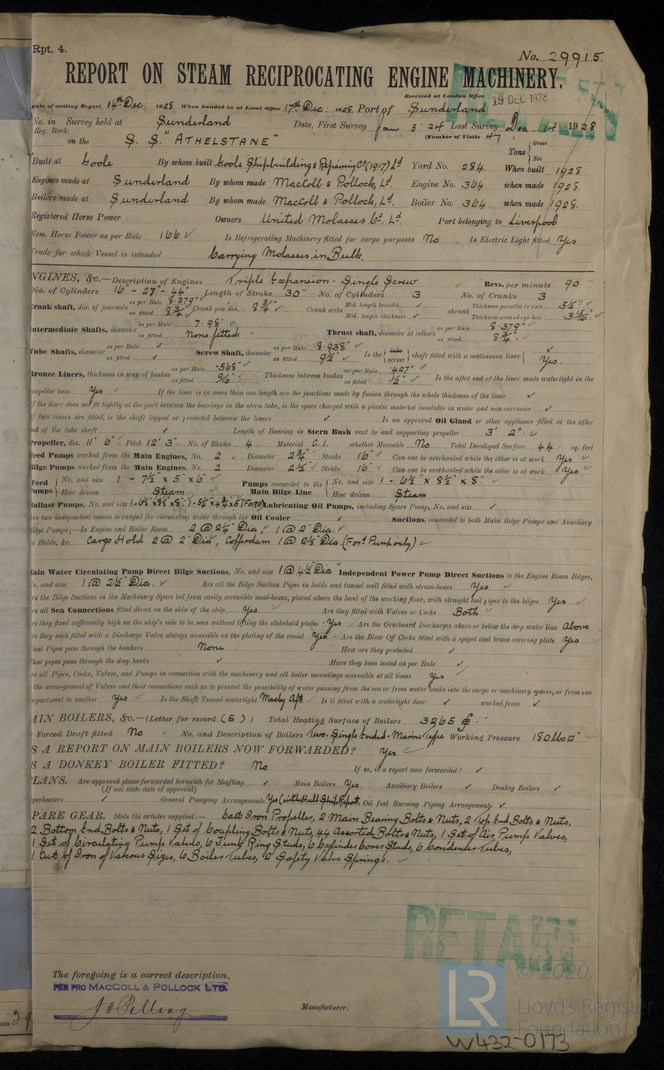 Rpt. 4.
No. 29915.
REPORT ON STEAM RECIPROCATING ENGINE MACHINERY.
Received at London Office 19 DEC 1928
Date of writing Report 14th Dec: 1928 When handed in at Local Office 17th Dec: 1928. Port of Sunderland
No. in Survey held at Sunderland Date, First Survey Jan 3 '24 Last Survey Dec. 14 1928
Reg. Book. (Number of Visits 47
on the S. S. "ATHELSTANE" Tons Gross Net
Built at Goole By whom built Goole Shipbuilding & Repairing Co (1917) Ld Yard No. 284 When built 1928
Engines made at Sunderland By whom made MacColl & Pollock, Ld. Engine No. 364 when made 1928
Boilers made at Sunderland By whom made MacColl & Pollock, Ld. Boiler No. 364 when made 1928.
Registered Horse Power Owners United Molasses Co. Ld. Port belonging to Liverpool
Nom. Horse Power as per Rule 166 Is Refrigerating Machinery fitted for cargo purposes No Is Electric Light fitted Yes
Trade for which Vessel is intended Carrying Molasses in Bulk.
ENGINES, &c.—Description of Engines Triple Expansion - Single Screw Revs. per minute 90
Dia. of Cylinders 16" - 27" - 44" Length of Stroke 30" No. of Cylinders 3 No. of Cranks 3
Crank shaft, dia. of journals as per Rule 8.379" as fitted 8 3/4" Crank pin dia. 8 3/4" Crank webs Mid. length breadth Mid. length thickness shrunk Thickness parallel to axis 5 1/2" Thickness around eye-hole
Intermediate Shafts, diameter as per Rule 7.98" as fitted None fitted Thrust shaft, diameter at collars as per Rule 8.379" as fitted 8 3/4"
Tube Shafts, diameter as per Rule as fitted Screw Shaft, diameter as per Rule 8.938" as fitted 9 1/2" Is the tube screw shaft fitted with a continuous liner Yes.
Bronze Liners, thickness in way of bushes as per Rule .568" as fitted 9/16" Thickness between bushes as per Rule .427" as fitted 1/2" Is the after end of the liner made watertight in the
propeller boss Yes If the liner is in more than one length are the junctions made by fusion through the whole thickness of the liner
If the liner does not fit tightly at the part between the bearings in the stern tube, is the space charged with a plastic material insoluble in water and non-corrosive
If two liners are fitted, is the shaft lapped or protected between the liners Is an approved Oil Gland or other appliance fitted at the after
end of the tube shaft Length of Bearing in Stern Bush next to and supporting propeller 3' 2"
Propeller, dia. 11' 6" Pitch 12' 3" No. of Blades 4 Material C.I. whether Moveable No Total Developed Surface 44 sq. feet
Feed Pumps worked from the Main Engines, No. 2 Diameter 2 3/4" Stroke 16" Can one be overhauled while the other is at work Yes
Bilge Pumps worked from the Main Engines, No. 2 Diameter 2 1/2" Stroke 16" Can one be overhauled while the other is at work Yes
Feed Pumps No. and size 1 - 7 1/2" x 5" x 6" How driven Steam Pumps connected to the Main Bilge Line No. and size 1 - 6 1/2" x 8 1/2" x 8" How driven Steam
Ballast Pumps, No. and size Lubricating Oil Pumps, including Spare Pump, No. and size
Are two independent means arranged for circulating water through the Oil Cooler Suctions, connected to both Main Bilge Pumps and Auxiliary
Bilge Pumps,—In Engine and Boiler Room 2 @ 2 1/4" Dia, 1 @ 2" Dia.
In Holds, &c. Cargo Hold 2 @ 2" Dia, Cofferdam 1 @ 2 1/2" Dia. (Forwd Pump only)
Main Water Circulating Pump Direct Bilge Suctions, No. and size 1 @ 4 1/2" Dia Independent Power Pump Direct Suctions to the Engine Room Bilges,
No. and size 1 @ 2 1/2" Dia. Are all the Bilge Suction Pipes in holds and tunnel well fitted with strum-boxes Yes
Are the Bilge Suctions in the Machinery Space led from easily accessible mud-boxes, placed above the level of the working floor, with straight tail pipes to the bilges Yes
Are all Sea Connections fitted direct on the skin of the ship Yes Are they fitted with Valves or Cocks Both
Are they fixed sufficiently high on the ship's side to be seen without lifting the stokehold plates Yes Are the Overboard Discharges above or below the deep water line Above
Are they each fitted with a Discharge Valve always accessible on the plating of the vessel Yes Are the Blow Off Cocks fitted with a spigot and brass covering plate Yes
What Pipes pass through the bunkers None How are they protected
What pipes pass through the deep tanks Have they been tested as per Rule
Are all Pipes, Cocks, Valves, and Pumps in connection with the machinery and all boiler mountings accessible at all times Yes
Is the arrangement of Valves and their connections such as to prevent the possibility of water passing from the sea or from water tanks into the cargo or machinery spaces, or from one
compartment to another Yes Is the Shaft Tunnel watertight Machy Aft Is it fitted with a watertight door worked from
MAIN BOILERS, &c.—(Letter for record (S)) Total Heating Surface of Boilers 3265
Forced Draft fitted No No. and Description of Boilers Two, Single Ended - Marine Type Working Pressure 180 lbs
IS A REPORT ON MAIN BOILERS NOW FORWARDED? Yes
IS A DONKEY BOILER FITTED? No If so, is a report now forwarded?
PLANS. Are approved plans forwarded herewith for Shafting Main Boilers Yes Auxiliary Boilers Donkey Boilers
(If not state date of approval)
Superheaters General Pumping Arrangements Yes (with Hull Ship Report. Oil fuel Burning Piping Arrangements
SPARE GEAR. State the articles supplied:— Cast Iron Propeller, 2 Main Bearing Bolts & Nuts, 2 Top End Bolts & Nuts,
2 Bottom End Bolts & Nuts, 1 Set of Coupling Bolts & Nuts, 44 Assorted Bolts & Nuts, 1 Set of Air Pump Valves,
1 Set of Circulating Pump Valves, 6 Junk Ring Studs, 6 Cylinder Cover Studs, 6 Condenser Tubes,
of Iron of Various Sizes, 6 Boiler Tubes, 2 Safety Valve Springs.
RETAIN
The foregoing is a correct description,
PER PRO MACCOLL & POLLOCK LTD.
Manufacturer.
LR
© 2020
Lloyd's Register
Foundation
W432-0173